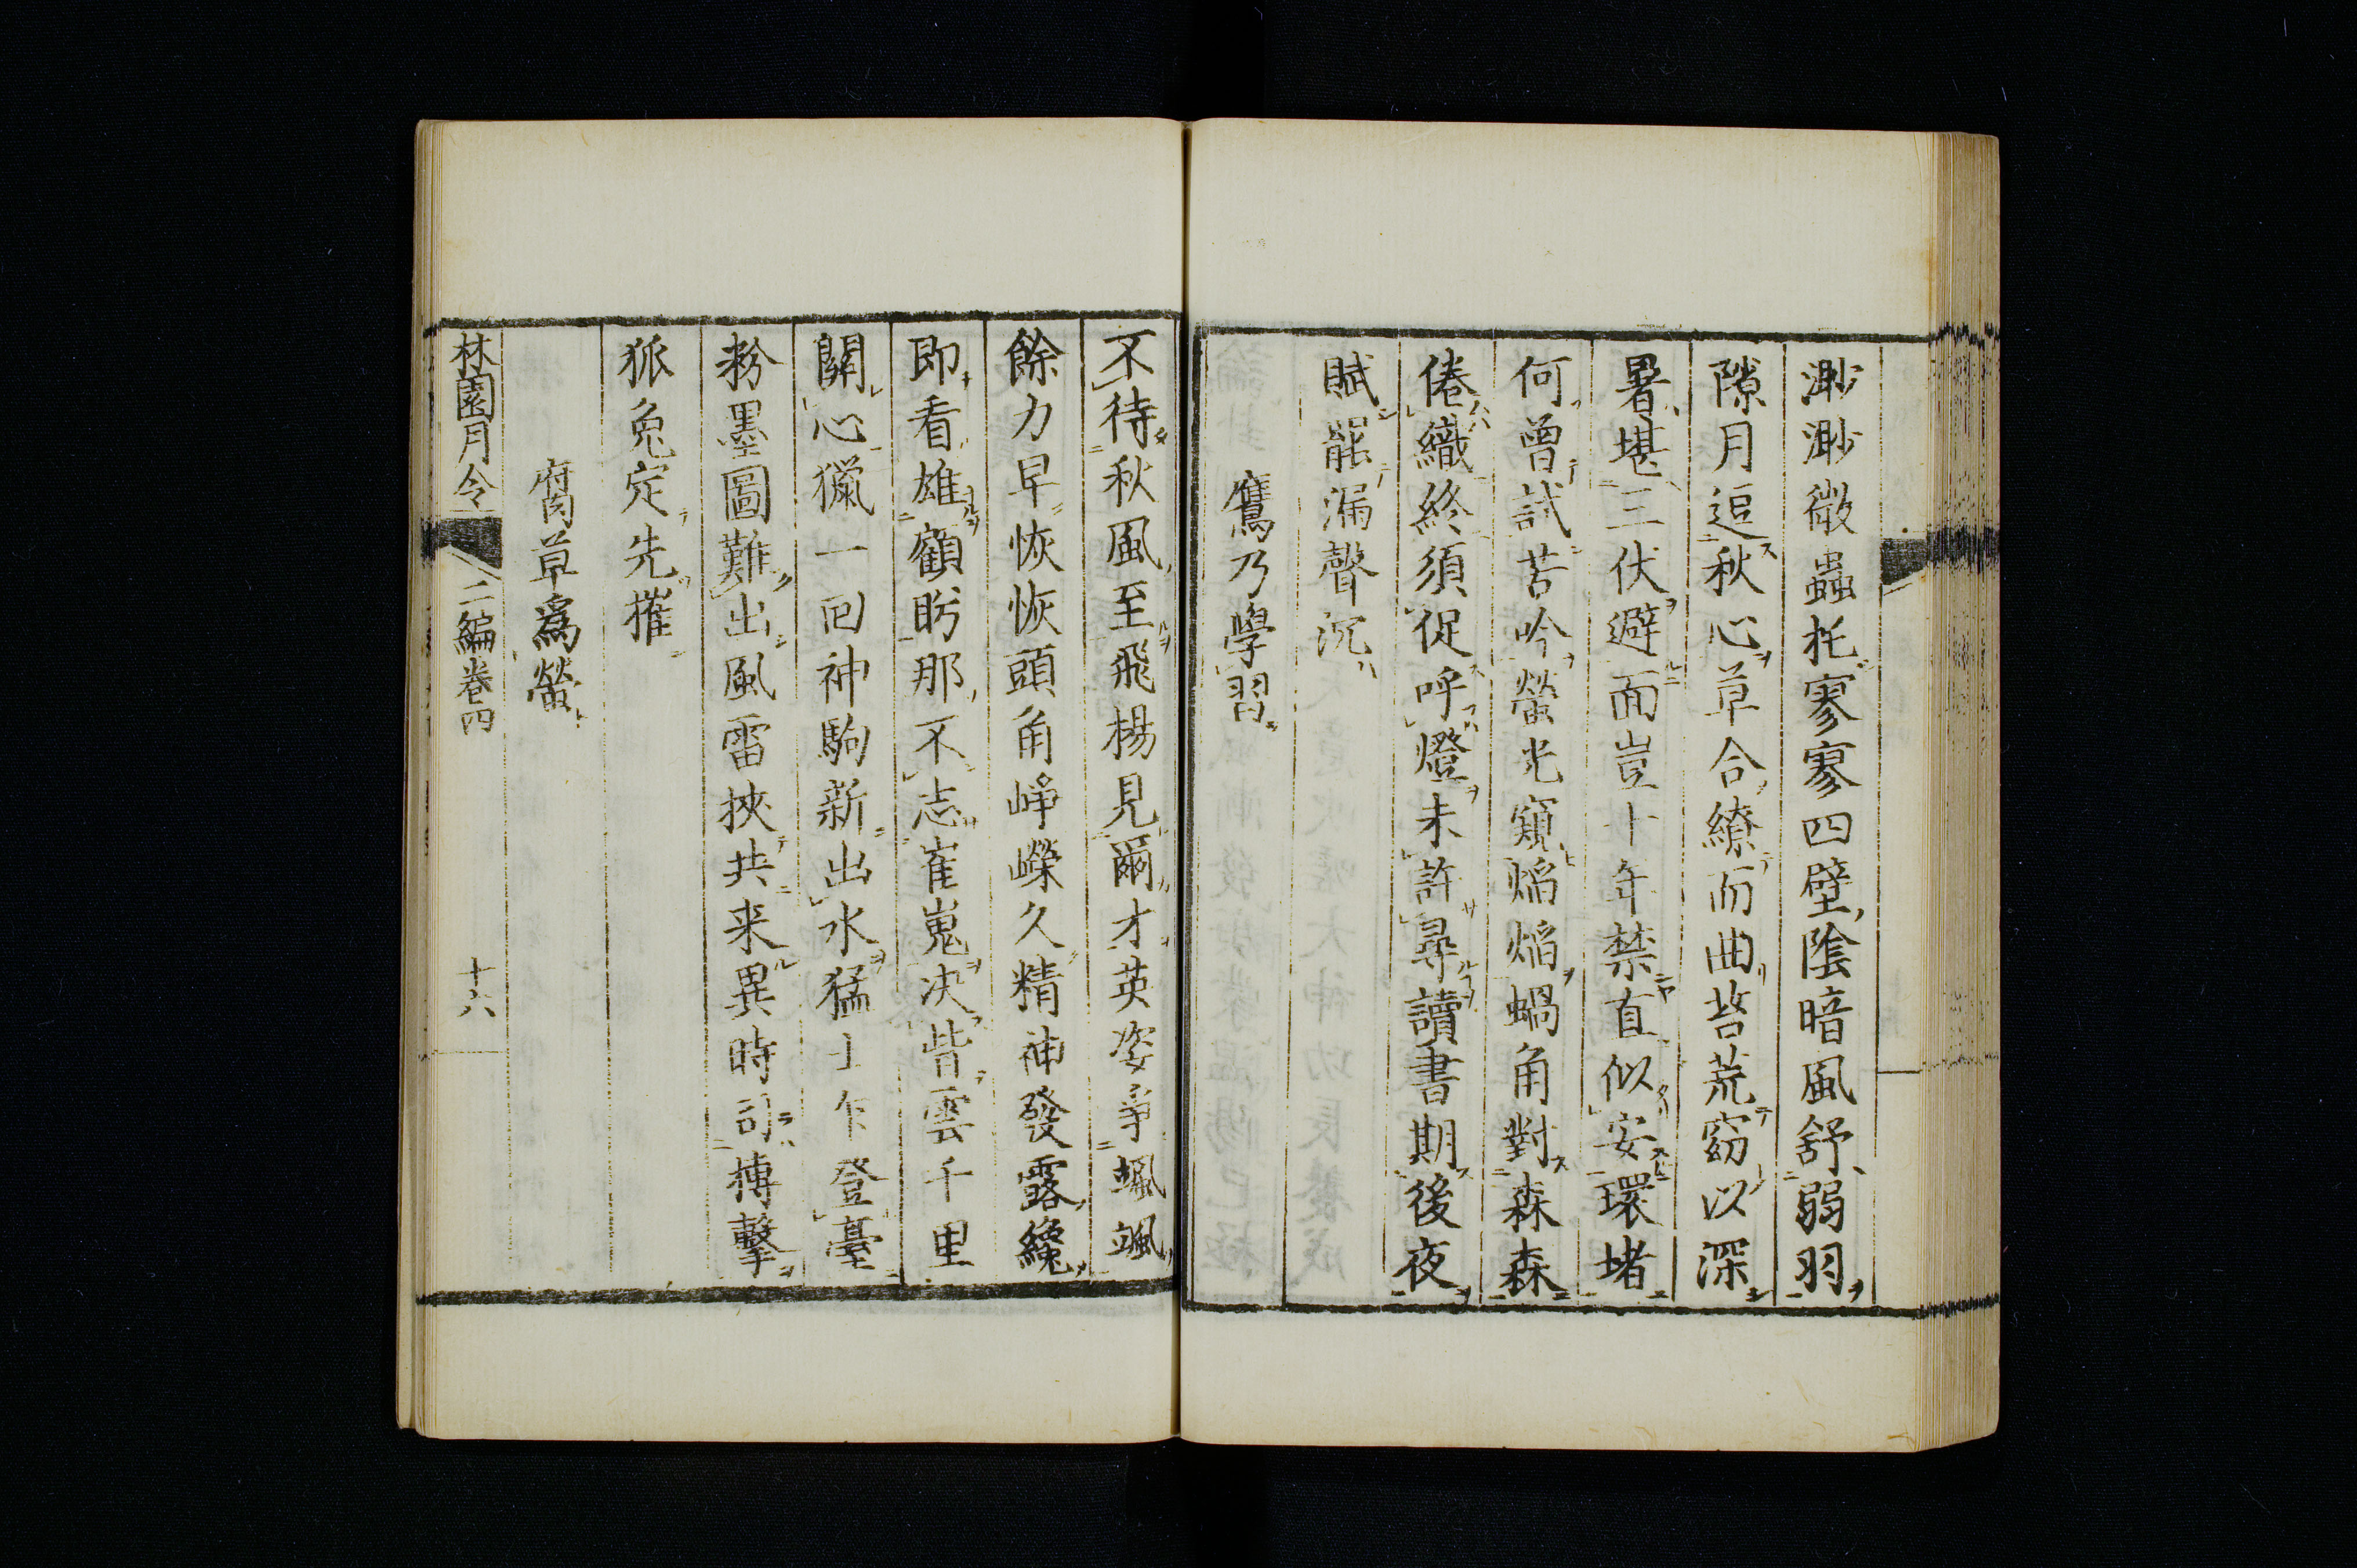 渺渺微蟲托寥寥四壁陰暗風舒弱羽
隙月逗秋心草合繚而曲苔荒窈以深
暑堪三伏避面豈十年禁直似安環堵
何曾試苦吟螢光窺焰焰蝸角對森森
倦織終須促呼燈未許尋讀書期後夜
賦罷漏聲沉
鷹乃學習
不待秋風至飛揚見爾才英姿爭颯颯
餘力早恢恢頭角崢嶸久精神發露纔
即看雄顧盻那不志崔嵬決眥雲千里
關心獵一囘神駒新出水猛士乍登臺
粉墨圖難出風雷挾共来異時司搏擊
狐兔定先摧
腐草為螢
林園月令 二編卷四 十六